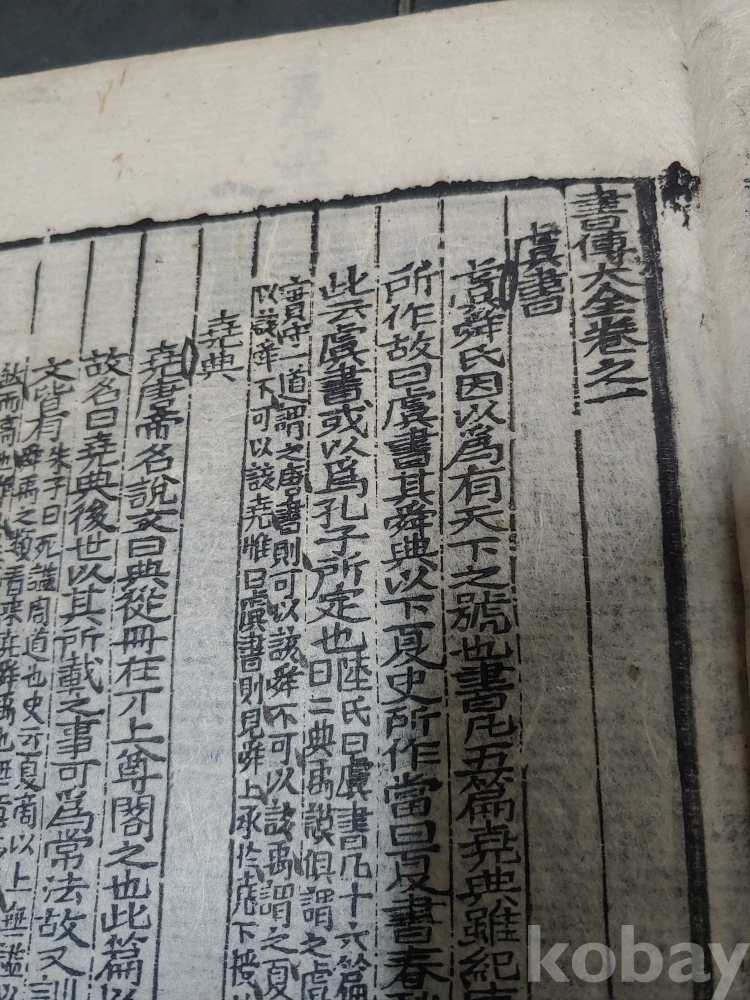 書傳大全卷之一
虞書
虞舜氏因以爲有天下之號也書凡五篇堯典雖紀
所作故曰虞書其舜典以下夏史所作當曰夏書春
此云虞書或以爲孔子所定也
陳氏曰虞書凡十六篇
曰二典禹謨俱謂之虞
實守一道謂之唐書則可以該舜不可以該禹謂之夏
以該舜不可以該堯惟曰虞書則見舜上承於堯下授
堯典
堯唐帝名說文曰典從冊在丌上尊閣之也此篇以
故名曰堯典後世以其所載之事可爲常法故又訓
文皆有
朱子曰死諡周道也史云夏商以上無諡以
舜禹之類看來堯舜禹也
kobay